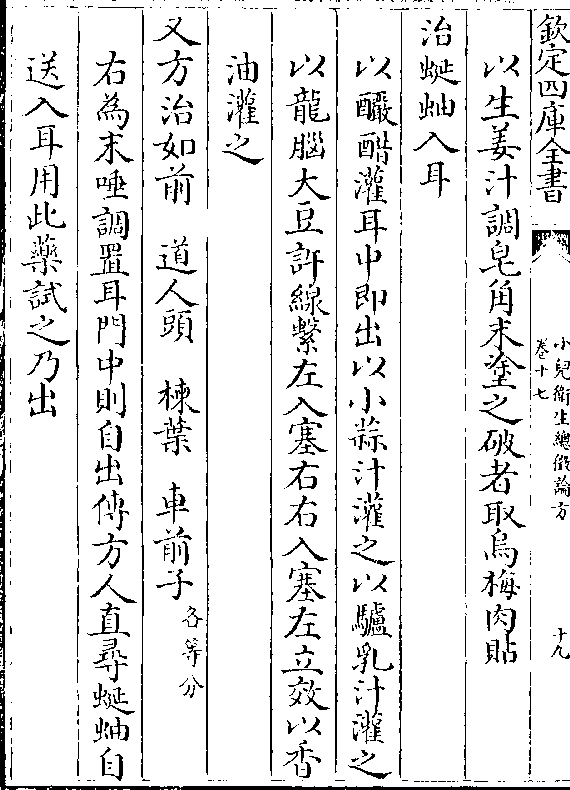 欽定四庫全書
小兒衛生總微論方
卷十七
十九
以生姜汁調皂角末塗之破者取烏梅肉貼
治蜒蚰入耳
以釅醋灌耳中即出以小蒜汁灌之以驢乳汁灌之
以龍腦大豆許線繫左入塞右右入塞左立效以香
油灌之
又方治如前　道人頭　楝葉　車前子各等分
右為末唾調置耳門中則自出傳方人直尋蜒蚰自
送入耳用此藥試之乃出